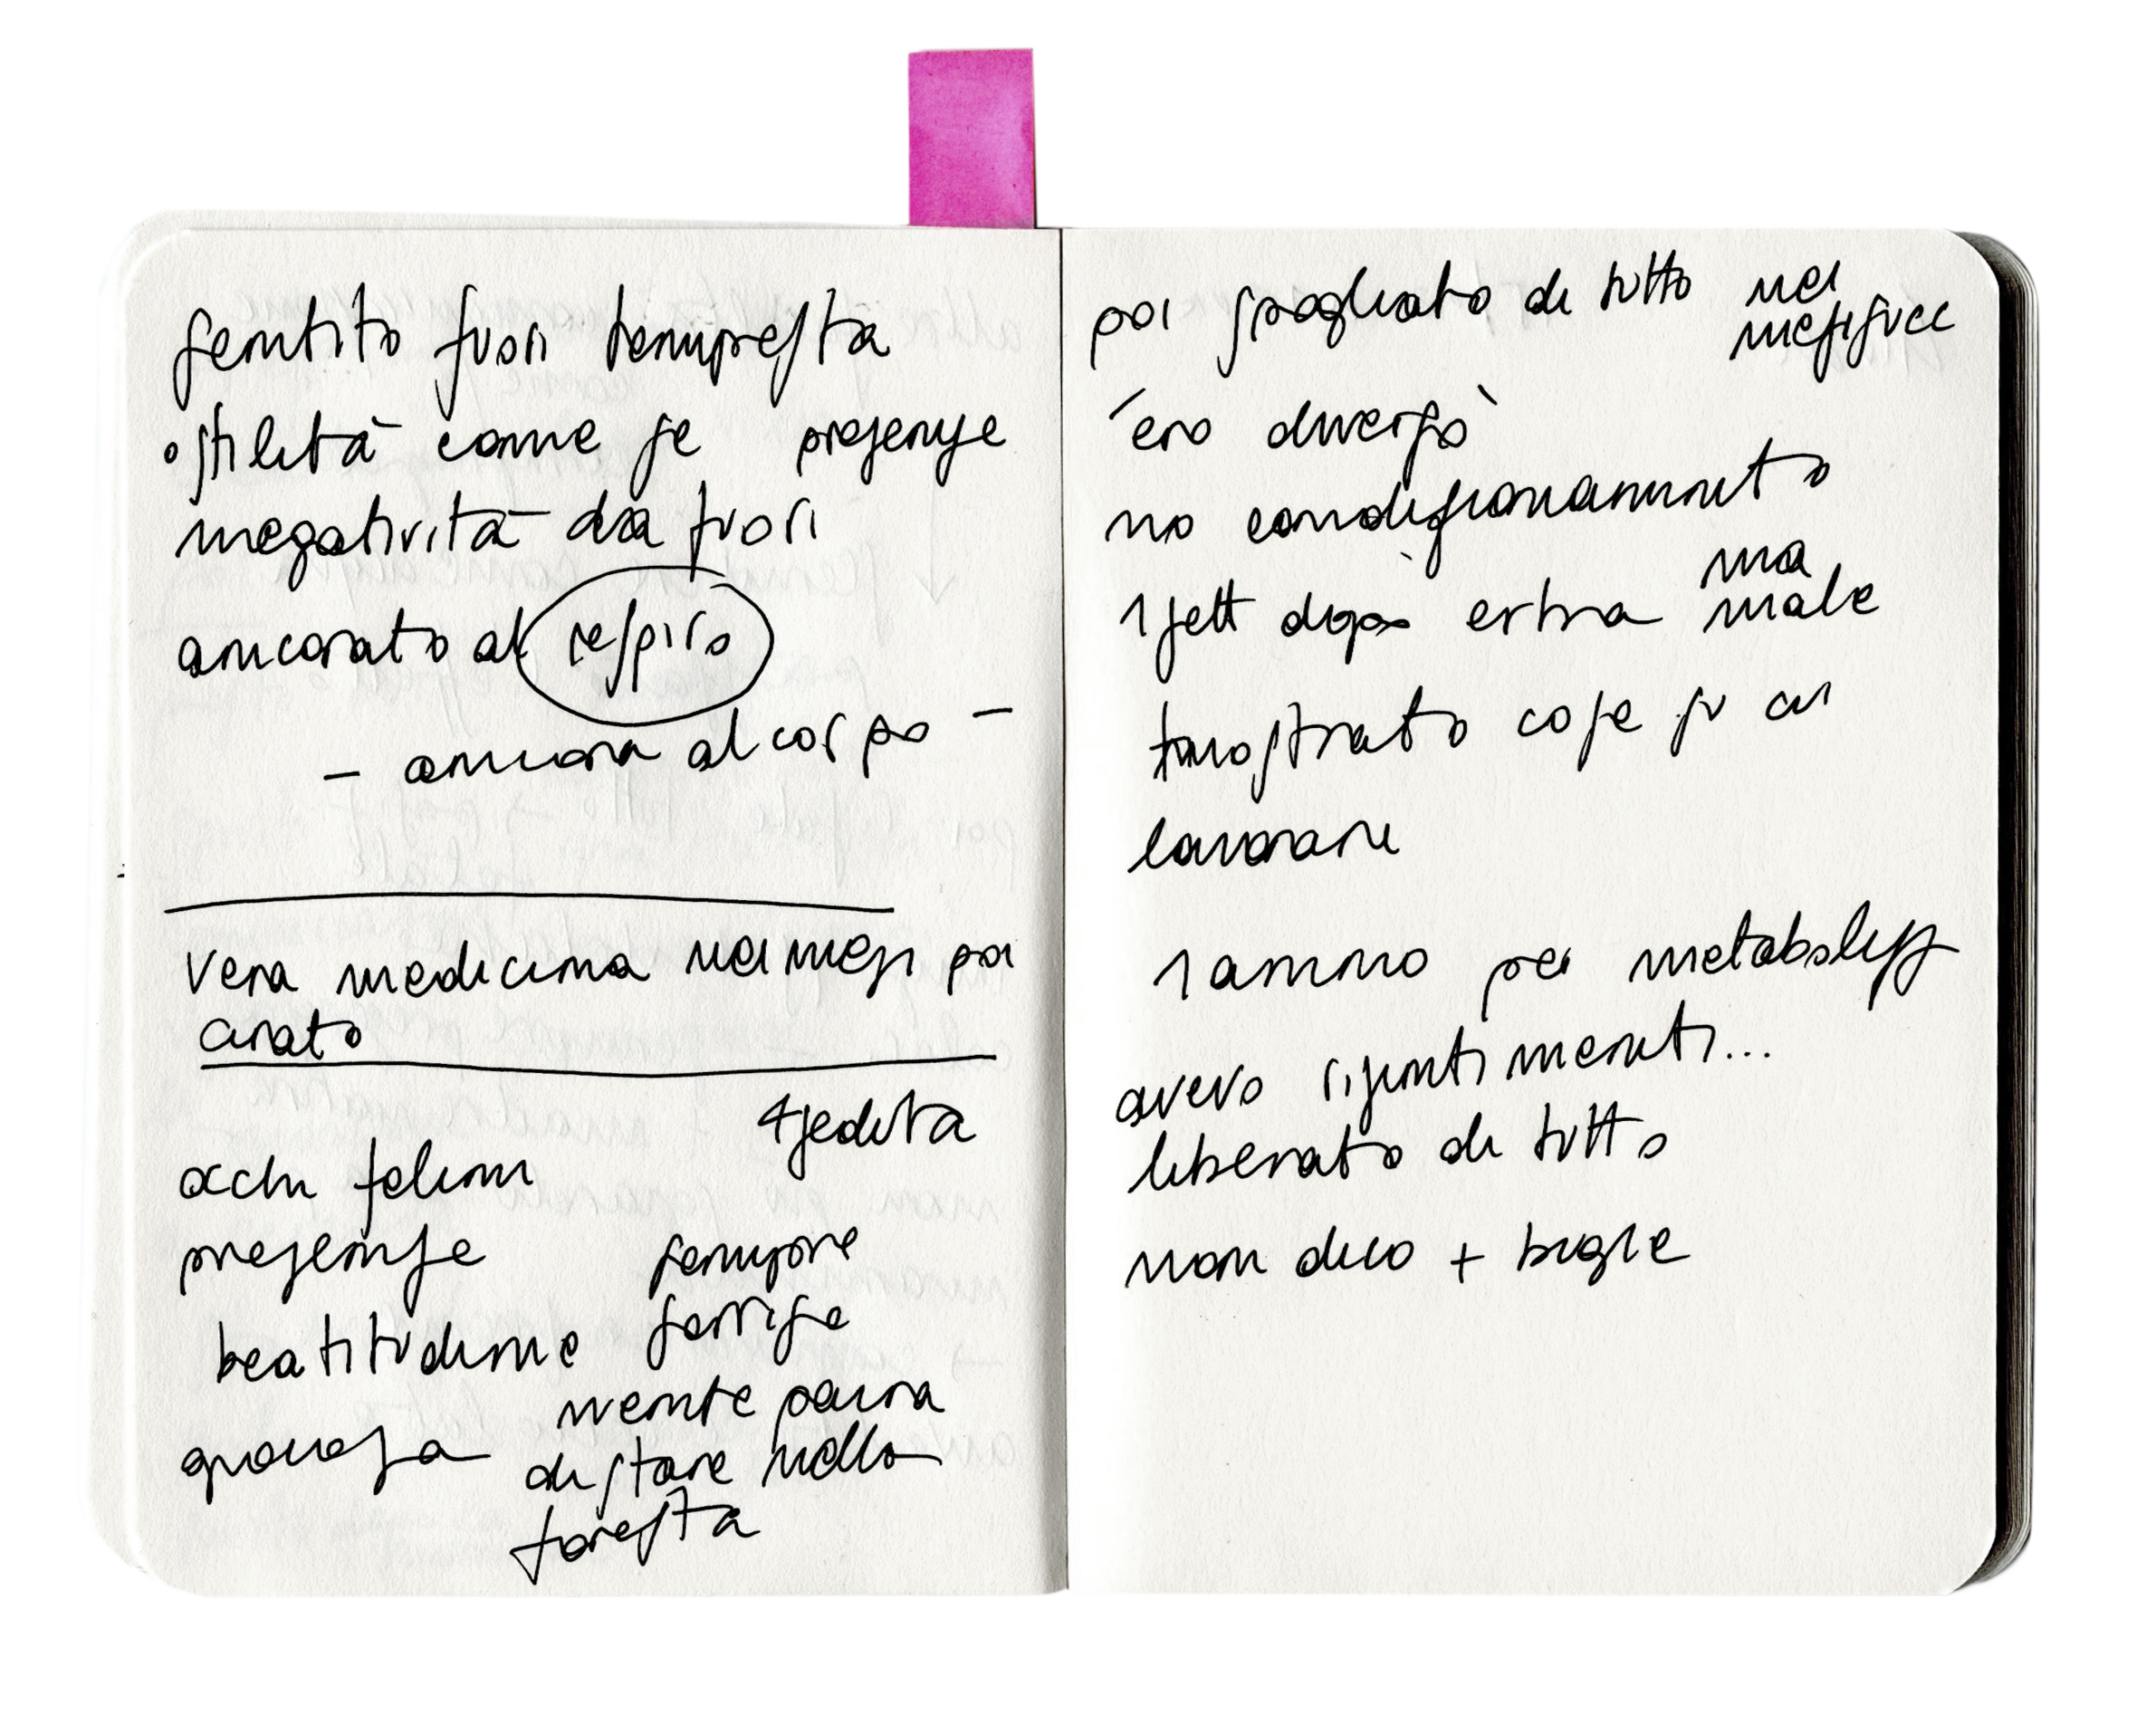 sentito fuori tempesta
ostilità come se presenze
negatività da fuori
ancorato al respiro
- ancora al corpo -
Vera medicina nei mesi poi
curato
4 seduta
occhi felini
presenze
sempore
beatitudine
serrise
mente paura
di stare nella
foresta
poi spogliato di tutto nei
mesi succ
'ero diverso`
no condizionamento
1 sett dopo extra ma
male
mostrato cose su cui
lavorare
1 anno per
avevo
liberato di tutto
non dico + bugie